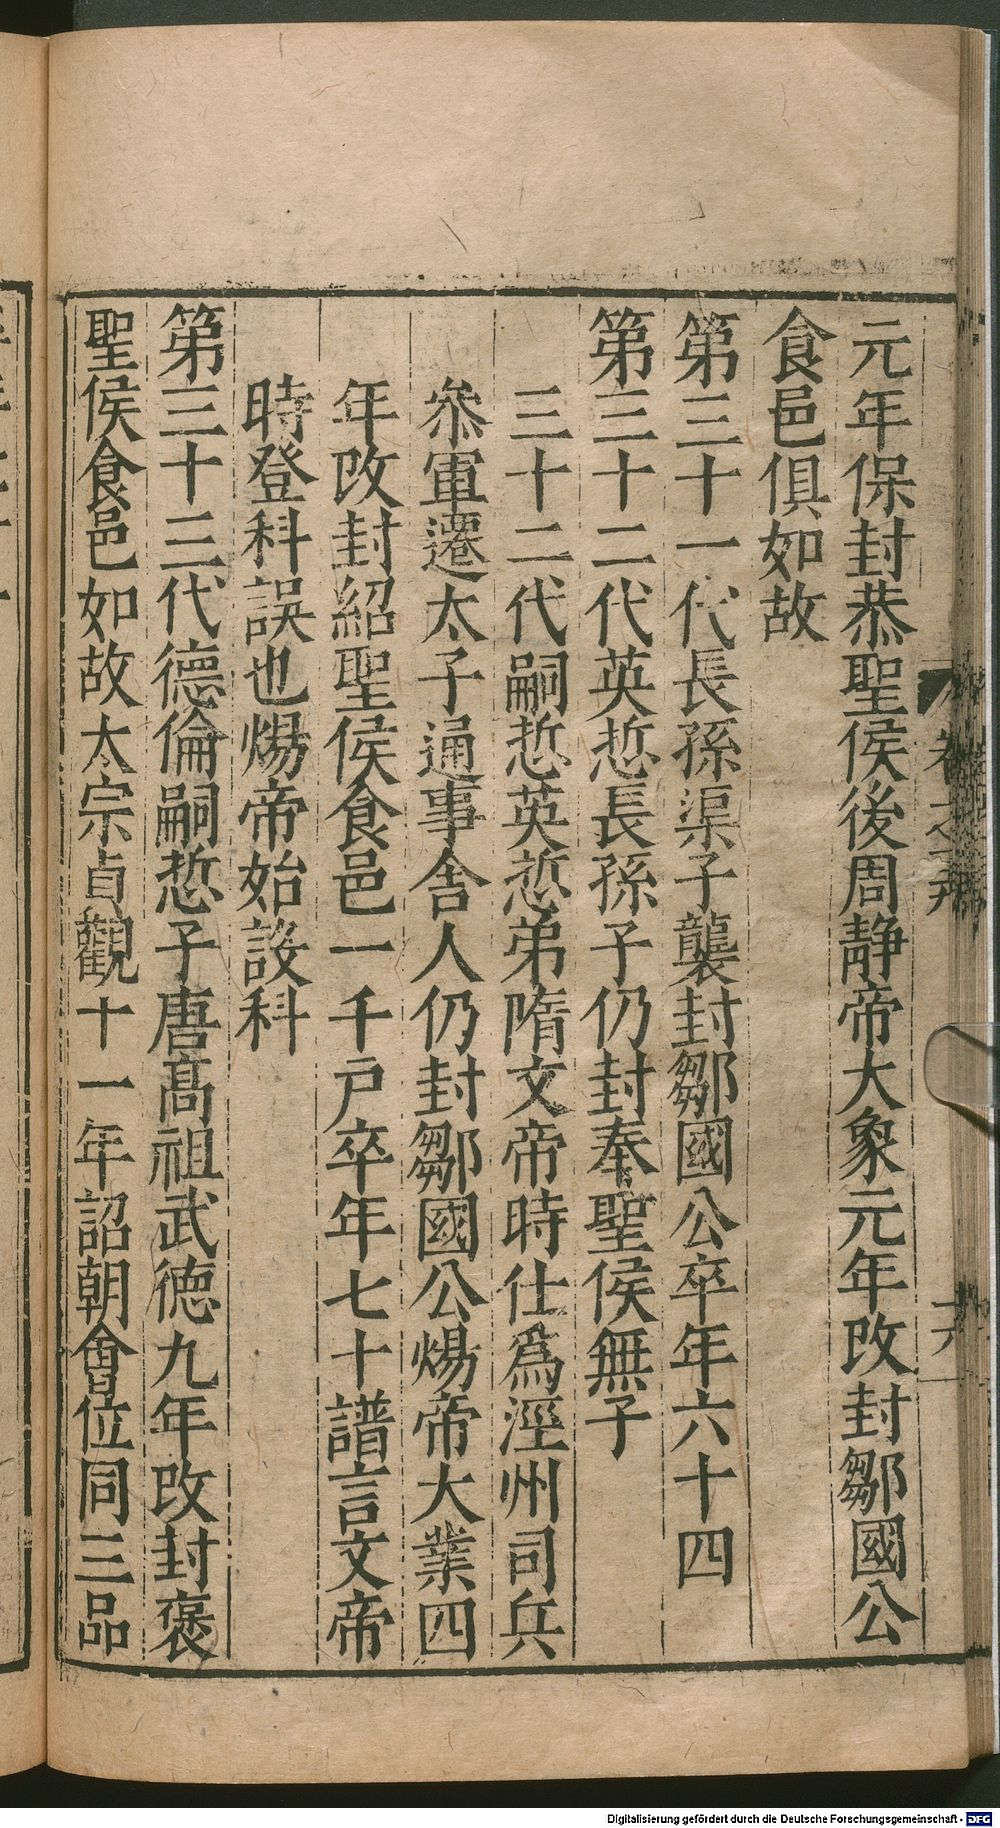 元年保封恭聖侯後周靜帝大象元年改封鄒國公
食邑俱如故
第三十一代長孫渠子襲封鄒國公卒年六十四
第三十二代英悊長孫子仍封奉聖侯無子
三十二代嗣悊英悊弟隋文帝時仕爲涇州司兵
叅軍遷太子通事舍人仍封鄒國公煬帝大業四
年改封紹聖侯食邑一千戸卒年七十譜言文帝
時登科誤也煬帝始設科
第三十三代德倫嗣悊子唐髙祖武德九年改封褒
聖侯食邑如故太宗貞觀十一年詔朝會位同三品
Digitalisierung gefördert durch die Deutsche Forschungsgemeinschaft - DFG